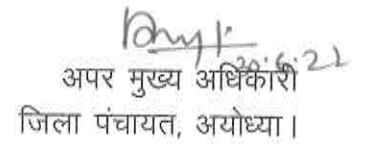 30.6.21
अपर मुख्य अधिकारी
जिला पंचायत, अयोध्या।